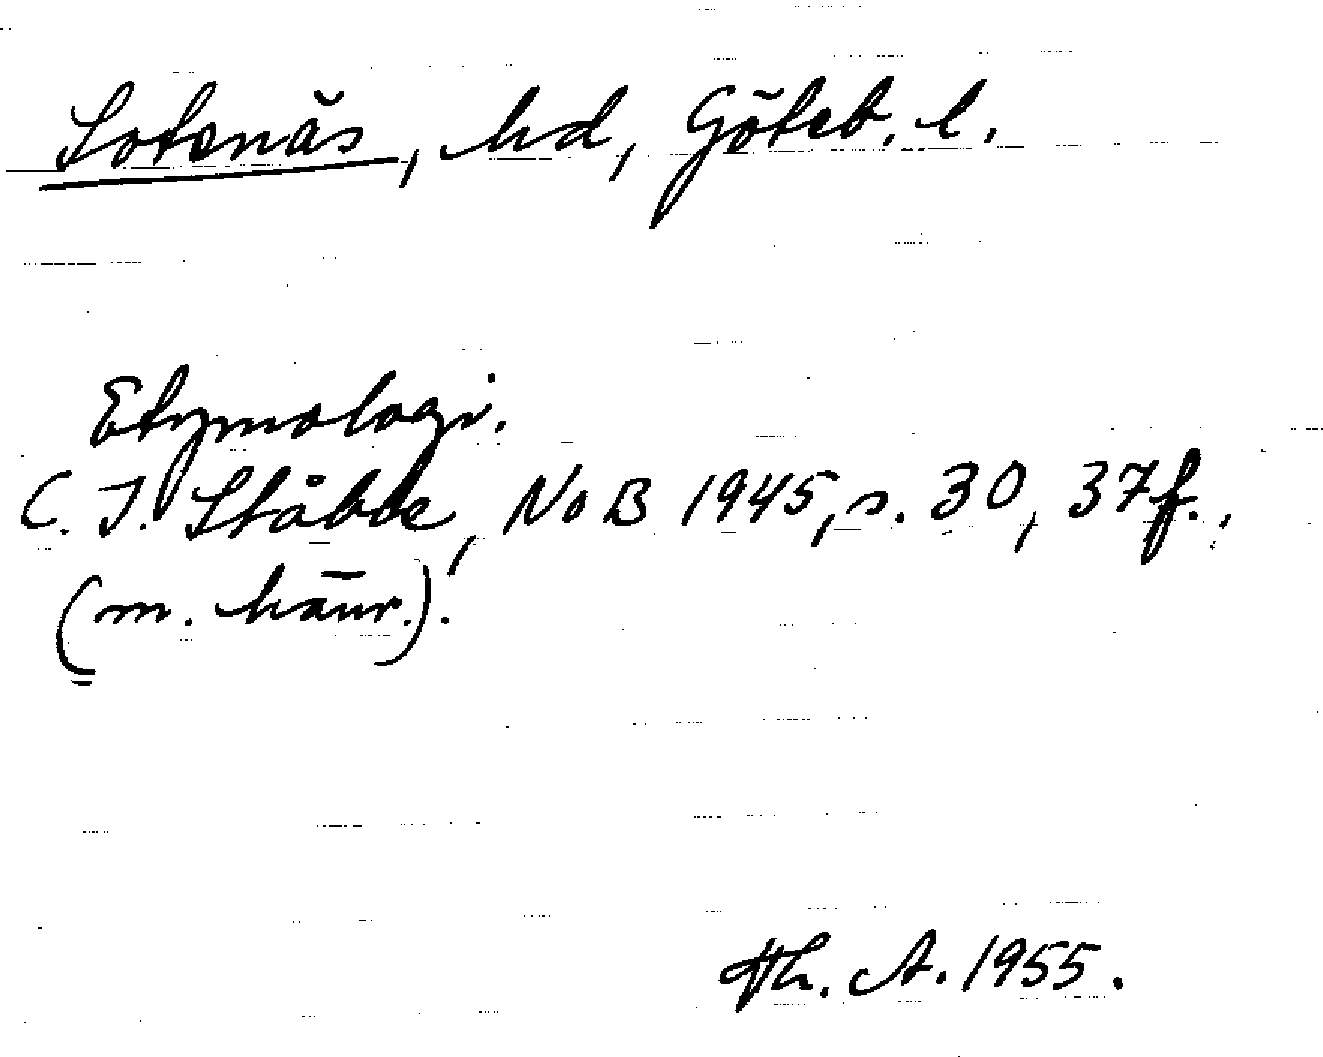 Sotenäs, hd, Göteb. l.
Etymologi.
C. I. Ståhle, NoB 1945, s. 30, 37f.,
(m. hänv.).
Th. A. 1955.